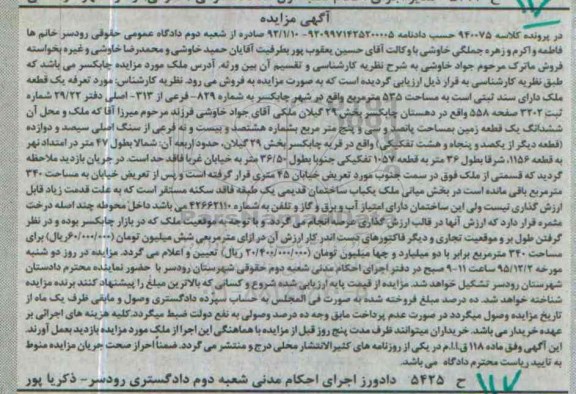 آگهی مزایده
در پرونده کلاسه ۹۴۰۰۷۵ حسب دادنامه ۹۳۰۹۹۷۱۴۲۵۲۰۰۰۰۵-۹۲/۱/۱۰ صادره از شعبه دوم دادگاه عمومی حقوقی رودسر خانم ها
فاطمه و اکرم و زهره جملگی خاوشی با وکالت آقای حسین یعقوب پور بطرفیت آقایان حمید خاوشی و محمدرضا خاوشی و غیره بخواسته
فروش ماترک مرحوم جواد خاوشی به شرح نظریه کارشناسی و تقسیم آن بین ورثه. آدرس ملک مورد مزایده چابکسر می باشد که
طبق نظریه کارشناسی به قرار ذیل ارزیابی گردیده است که به صورت مزایده به فروش می رود. نظریه کارشناس: مورد تعرفه یک قطعه
ملک دارای سند ثبتی است به مساحت ۵۳۵ مترمربع واقع در شهر چابکسر به شماره ۸۲۹- فرعی از ۳۱۳- اصلی دفتر ۲۹/۲۲ شماره
ثبت ۳۲۰۲ صفحه ۵۵۸ واقع در دهستان چابکسر بخش ۲۹ گیلان ملکی آقای جواد خاوشی فرزند مرحوم میرزا آقا که ملک و محل آن
ششدانگ یک قطعه زمین بمساحت پانصد و سی و پنج متر مربع بشماره هشتصد و بیست و نه فرعی از سنگ اصلی سیصد و دوازده
(قطعه دیگر از یکصد و پنجاه و هشت تفکیکی) واقع در قریه چابکسر بخش ۲۹ گیلان. حدود اربعه آن: شمالا بطول ۴۷ متر در امتداد نهر
به قطعه ۱۱۵۶، شرقا بطول ۳۶ متر به قطعه ۱۰۵۷ تفکیکی جنوبا بطول ۳۶/۵۰ متر به خیابان غربا فاقد حد است. در جریان بازدید ملاحظه
گردید که قسمتی از ملک فوق در سمت جنوب مورد تعریض خیابان ۴۵ متری قرار گرفته است و پس از تعریض خیابان به مساحت ۳۴۰
مترمربع باقی مانده است در بخش میانی ملک یکباب ساختمان قدیمی یک طبقه فاقد سکنه مستقر است که به علت قدمت زیاد قابل
ارزش گذاری نیست ولی این ساختمان دارای امتیاز آب و برق و گاز و تلفن به شماره ۴۲۶۶۲۱۱۰ می باشد داخل محوطه چند اصله درخت
مثمره قرار دارد که ارزش آنها در قالب ارزش گذاری عرصه انجام می گردد. و با توجه به موقعیت ملک که در بازار چابکسر بوده و در نظر
گرفتن طول بر و موقعیت تجاری و دیگر فاکتورهای دست اندر کار ارزش آن در ازای مترمربعی شش میلیون تومان (۶۰/۰۰۰/۰۰۰ریال) برای
مساحت ۳۴۰ مترمربع برابر با دو میلیارد و چها میلیون تومان (۲۰/۴۰۰/۰۰۰/۰۰۰ ریال) تعیین و اعلام می گردد. مزایده در روز دو شنبه
مورخه ۹۵/۱۲/۲ ساعت ۹-۱۱ صبح در دفتر اجرای احکام مدنی شعبه دوم حقوقی شهرستان رودسر با حضور نماینده محترم دادستان
شهرستان رودسر تشکیل خواهد شد. مزایده از قیمت پایه ارزیابی شده شروع و کسانی که بالاترین مبلغ را پیشنهاد کنند برنده مزایده
شناخته خواهد شد. ده درصد مبلغ فروخته شده به صورت فی المجلس به حساب سپرده دادگستری وصول و مابقی ظرف یک ماه از
تاریخ مزایده وصول میگردد در صورت عدم پرداخت مابق وجه ده درصد وصولی به نفع دولت ضبط میگردد.کلیه هزینه های اجرائی بر
عهده خریدار می باشد. خریداران میتوانند ظرف مدت پنج روز قبل از مزایده با هماهنگی این اجرا از ملک مورد مزایده بازدید بعمل آورند.
این آگهی وفق ماده ۱۱۸ ق.ا.ا.م در یکی از روزنامه های کثیرالانتشار محلی درج و منتشر می گردد. ضمناً احراز صحت جریان مزایده منوط
به تایید ریاست محترم دادگاه می باشد.
ح ۵۴۲۵ دادورز اجرای احکام مدنی شعبه دوم دادگستری رودسر- ذکریا پور